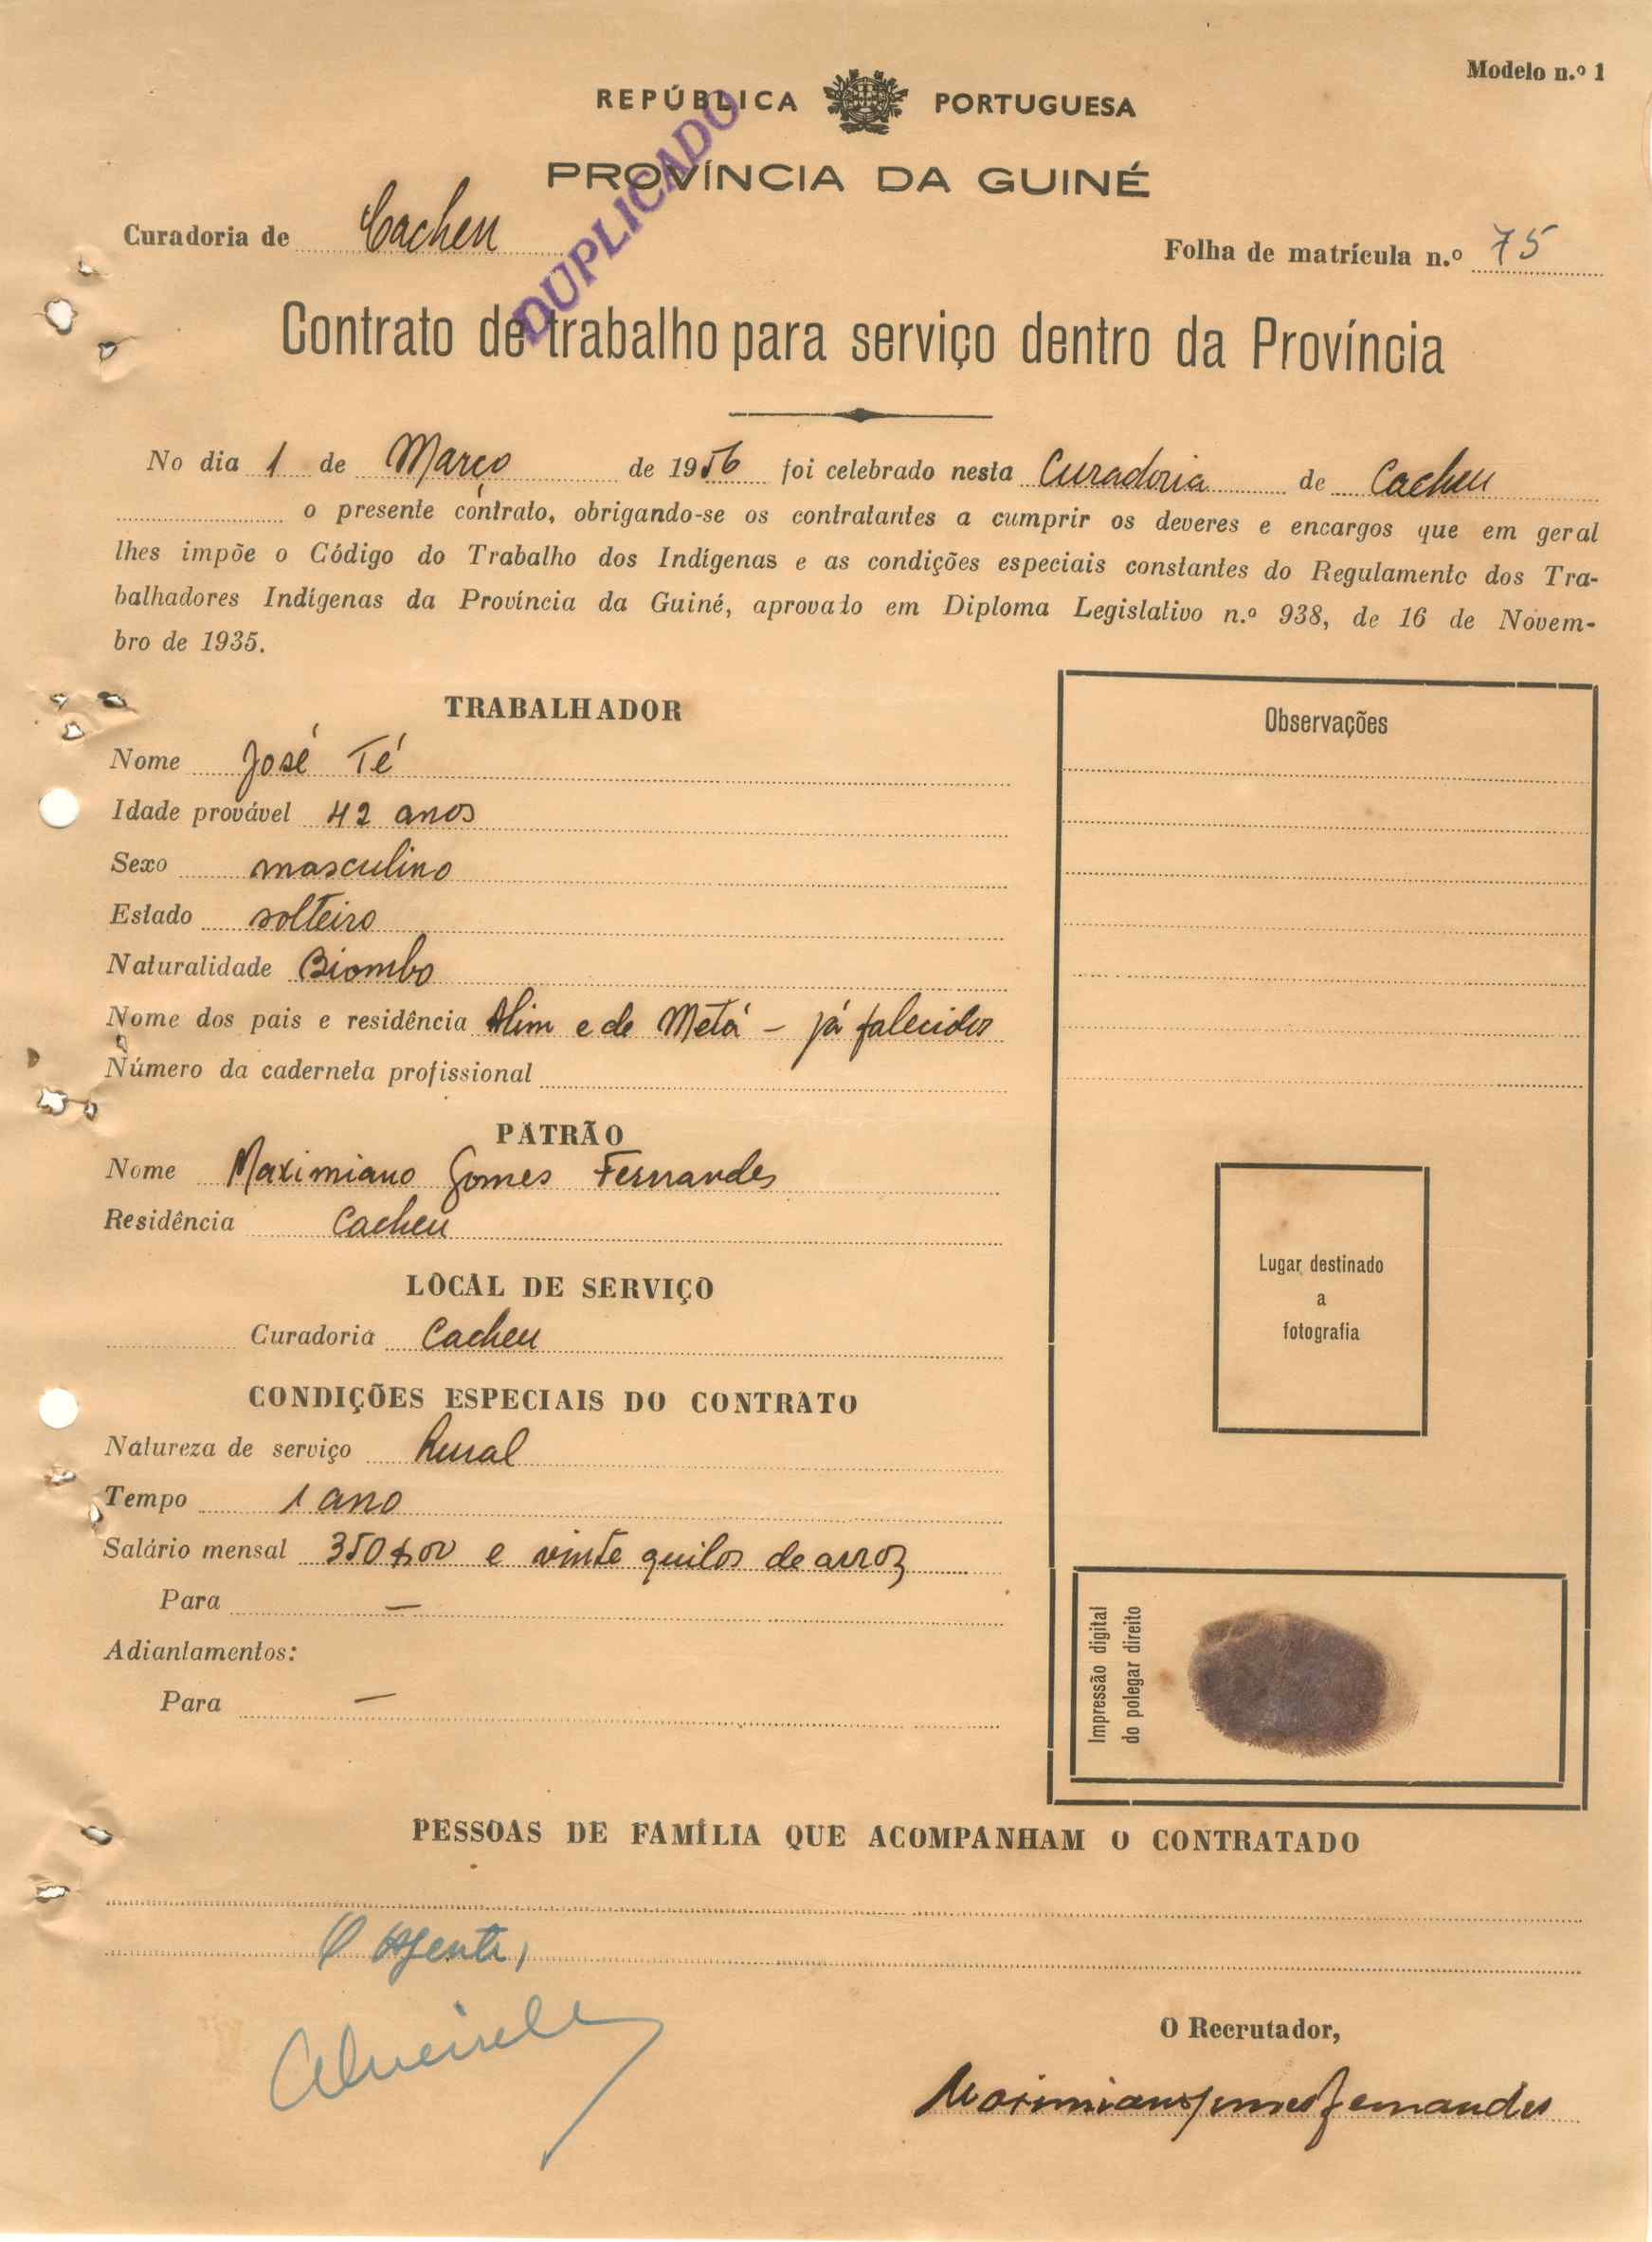 Modelo n.º 1
REPÚBLICA PORTUGUESA
PROVÍNCIA DA GUINÉ
DUPLICADO
Curadoria de Cacheu
Folha de matrícula n.º 75
Contrato de trabalho para serviço dentro da Província
No dia 1 de Março de 1956 foi celebrado nesta Curadoria de Cacheu
o presente contrato, obrigando-se os contratantes a cumprir os deveres e encargos que em geral
lhes impõe o Código do Trabalho dos Indígenas e as condições especiais constantes do Regulamento dos Tra-
balhadores Indígenas da Província da Guiné, aprovado em Diploma Legislativo n.º 938, de 16 de Novem-
bro de 1935.
TRABALHADOR
Nome José Té
Idade provável 42 anos
Sexo masculino
Estado solteiro
Naturalidade Biombo
Nome dos pais e residência Alim e de Metá - já falecidos
Número da caderneta profissional
PATRÃO
Nome Maximiano Gomes Fernandes
Residência Cacheu
LOCAL DE SERVIÇO
Curadoria Cacheu
CONDIÇÕES ESPECIAIS DO CONTRATO
Natureza de serviço Rural
Tempo 1 ano
Salário mensal 350$00 e vinte quilos de arroz
Para —
Adiantamentos:
Para —
Observações
Lugar destinado
a
fotografia
Impressão digital
do polegar direito
PESSOAS DE FAMÍLIA QUE ACOMPANHAM O CONTRATADO
O Agente,
O Recrutador,
Maximiano Gomes Fernandes